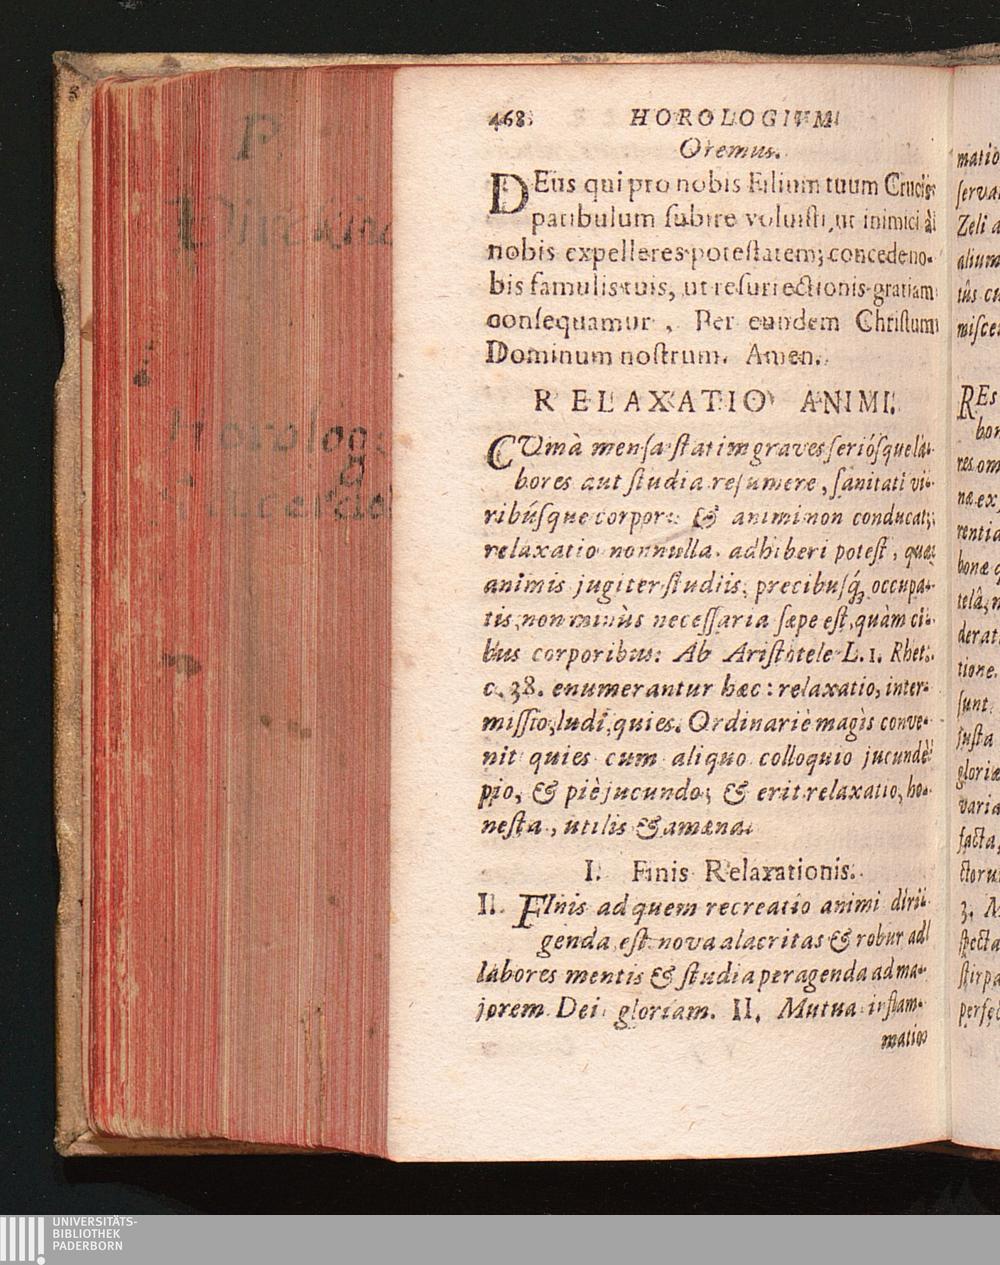 468 HOROLOGIUM
Oremus.
DEus qui pro nobis Filium tuum Crucis
patibulum subire voluisti, ut inimici à
nobis expelleres potestatem; concede no-
bis famulis tuis, ut resurrectionis gratiam
consequamur, Per eundem Christum
Dominum nostrum. Amen.
RELAXATIO ANIMI.
CUm à mensa statim graves seriósque la-
bores aut studia resumere, sanitati vi-
ribúsque corporis & animi non conducat;
relaxatio nonnulla adhiberi potest, quæ
animis jugiter studiis, precibusq́; occupa-
tis, non minùs necessaria sæpe est, quàm ci-
bus corporibus: Ab Aristotele L. 1. Rhet.
c. 38. enumerantur hæc: relaxatio, inter-
missio, ludi, quies. Ordinariè magis conve-
nit quies cum aliquo colloquio jucundè
pio, & piè jucundo; & erit relaxatio, ho-
nesta, utilis & amæna.
I. Finis Relaxationis.
II. FInis ad quem recreatio animi diri-
genda, est nova alacritas & robur ad
labores mentis & studia peragenda ad ma-
jorem Dei gloriam. II. Mutua inflam-
matio
matio
serva
Zeli a
alium
tûs cu
miscer
REs
bon
res om
næ ex
rentia
bonæ q
telâ, n
derat
tione.
sunt
justa
gloriæ
varia
facta,
ctoru
3. M
specta
stirpa
perfec
P
Horolog
UNIVERSITÄTS-
BIBLIOTHEK
PADERBORN